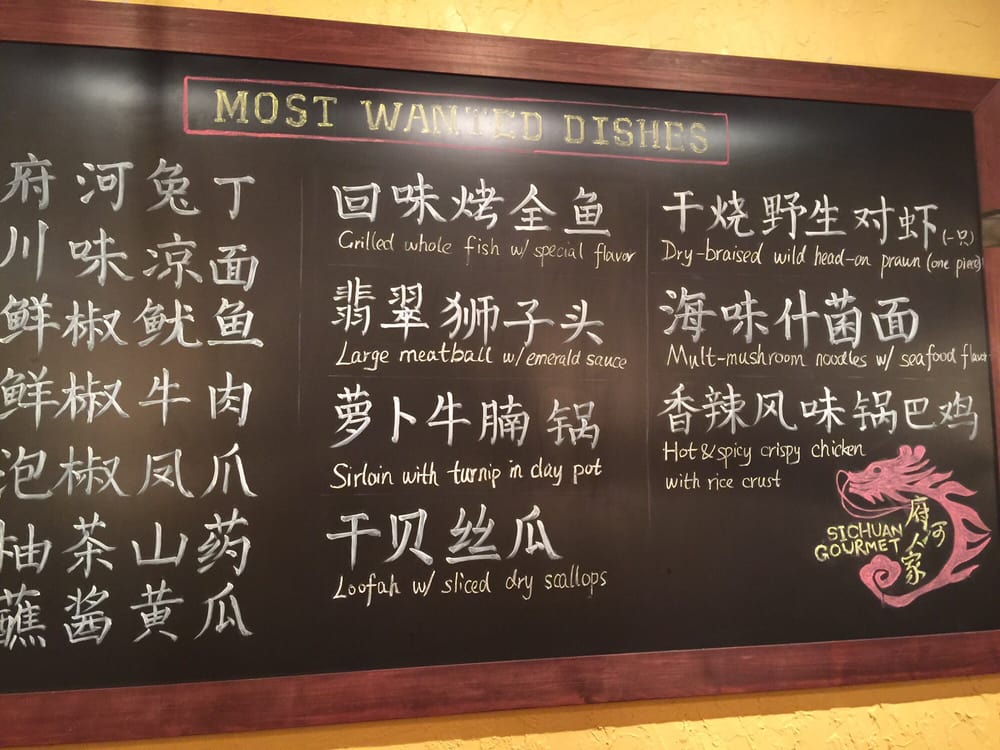 MOST WANTED DISHES
府河兔丁
川味凉面
鲜椒鱿鱼
鲜椒牛肉
泡椒凤爪
柚茶山药
蘸酱黄瓜
回味烤全鱼
Grilled whole fish w/ special flavor
翡翠狮子头
Large meatball w/ emerald sauce
萝卜牛腩锅
Sirloin with turnip in clay pot
干贝丝瓜
Loofah w/ sliced dry scallops
干烧野生对虾(一只)
Dry-braised wild head-on prawn (one piece)
海味什菌面
Mult-mushroom noodles w/ seafood flavor
香辣风味锅巴鸡
Hot & spicy crispy chicken
with rice crust
SICHUAN
GOURMET
府河人家